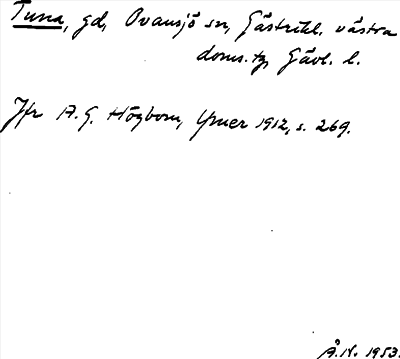 Tuna, gd, Ovansjö sn, Gästrikl. västra
doms.tg, Gävl. l.
Jfr A. G. Högbom, Ymer 1912, s. 269.
Å.N. 1953.